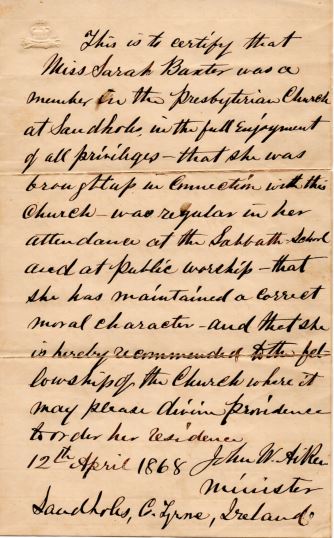 This is to certify that
Miss Sarah Baxter was a
member in the Presbyterian Church
at Sandholes in the full Enjoyment
of all privileges - that she was
brought up in Connection with this
Church - was regular in her
attendance at the Sabbath-School
and at public worship - that
she has maintained a correct
moral character - and that she
is hereby recommended to the fel-
lowship of the Church where it
may please divine providence
to order her residence
12th April 1868 John W. Aiken
minister
Sandholes, C. Tyrne, Ireland